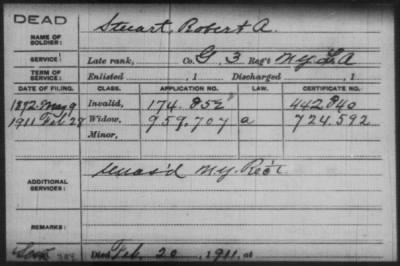 DEAD
NAME OF SOLDIER: Steuart, Robert A.
SERVICE: Late rank, Co. G, 3 Reg't N.Y. L. A
TERM OF SERVICE: Enlisted , 1 Discharged , 1
DATE OF FILING. CLASS. APPLICATION NO. LAW. CERTIFICATE NO.
1892 May 9 Invalid, 174.852 442840
1911 Feb 28 Widow, 959,707 a 724.592
Minor,
ADDITIONAL SERVICES: Unas'd N.Y.
REMARKS:
Died Feb. 20, 1911, at